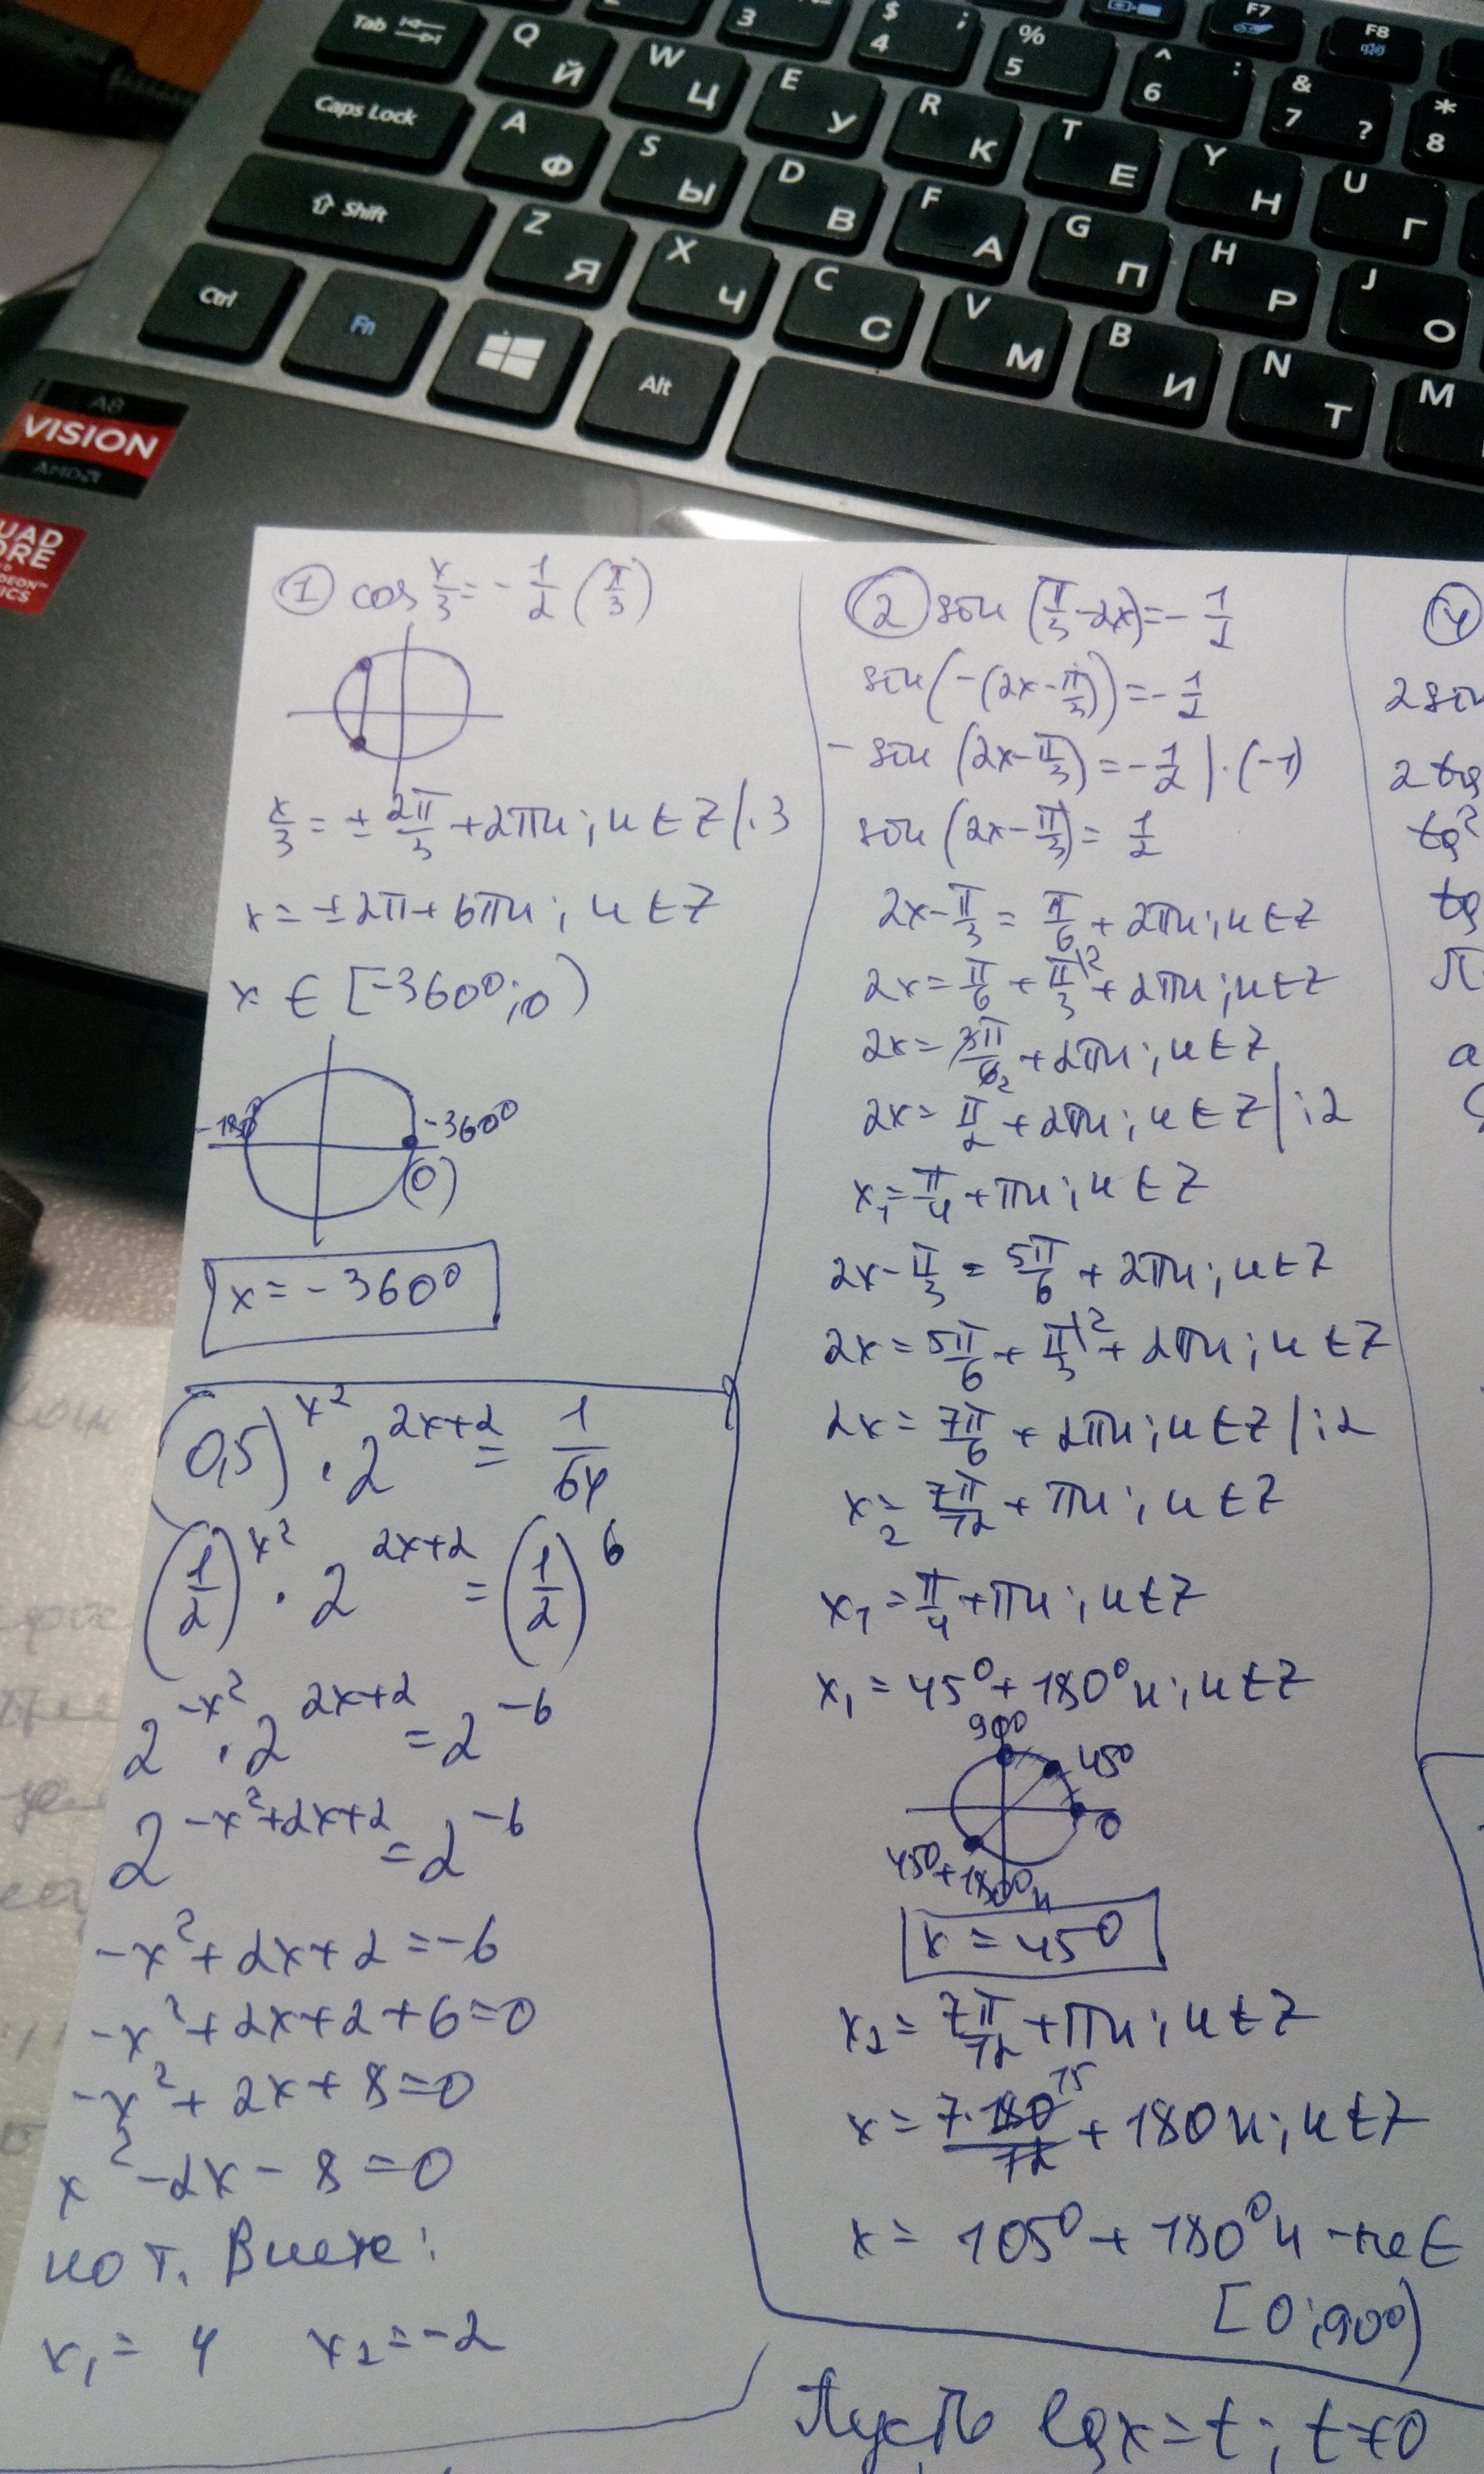 Tab
Q Й
W Ц
E У
R К
T Е
Y Н
U Г
3
$ ; 4
% 5
^ : 6
& 7 ?
* 8
F7
F8
Caps Lock
A Ф
S Ы
D В
F А
G П
H Р
J О
Shift
Z Я
X Ч
C С
V М
B И
N Т
M
Ctrl
Fn
Alt
A8
VISION
AMD
UAD
ORE
DEON™
ICS
① cos x/3 = - 1/2 (π/3)
x/3 = ± 2π/3 + 2πn; n ∈ Z |·3
x = ± 2π + 6πn; n ∈ Z
x ∈ [-360°; 0)
-180°
-360°
(0)
x = -360°
(0,5)^x² · 2^(2x+2) = 1/64
(1/2)^x² · 2^(2x+2) = (1/2)^6
2^(-x²) · 2^(2x+2) = 2^(-6)
2^(-x²+2x+2) = 2^(-6)
-x² + 2x + 2 = -6
-x² + 2x + 2 + 6 = 0
-x² + 2x + 8 = 0
x² - 2x - 8 = 0
по т. Виета:
x₁ = 4 x₂ = -2
② sin (π/3 - 2x) = - 1/2
sin (-(2x - π/3)) = - 1/2
- sin (2x - π/3) = - 1/2 | · (-1)
sin (2x - π/3) = 1/2
2x - π/3 = π/6 + 2πn; n ∈ Z
2x = π/6 + π/3 \2 + 2πn; n ∈ Z
2x = 3π/6 2 + 2πn; n ∈ Z
2x = π/2 + 2πn; n ∈ Z | :2
x₁ = π/4 + πn; n ∈ Z
2x - π/3 = 5π/6 + 2πn; n ∈ Z
2x = 5π/6 + π/3 \2 + 2πn; n ∈ Z
2x = 7π/6 + 2πn; n ∈ Z | :2
x₂ = 7π/12 + πn; n ∈ Z
x₁ = π/4 + πn; n ∈ Z
x₁ = 45° + 180°n; n ∈ Z
90°
45°
0
45° + 180°n
x = 45°
x₂ = 7π/12 + πn; n ∈ Z
x = 7·180 15/12 + 180n; n ∈ Z
x = 105° + 180°n - не ∈
[0; 90°)
Пусть lg x = t; t ≠ 0
④
2 sin
2 tg
tg²
tg
П
a